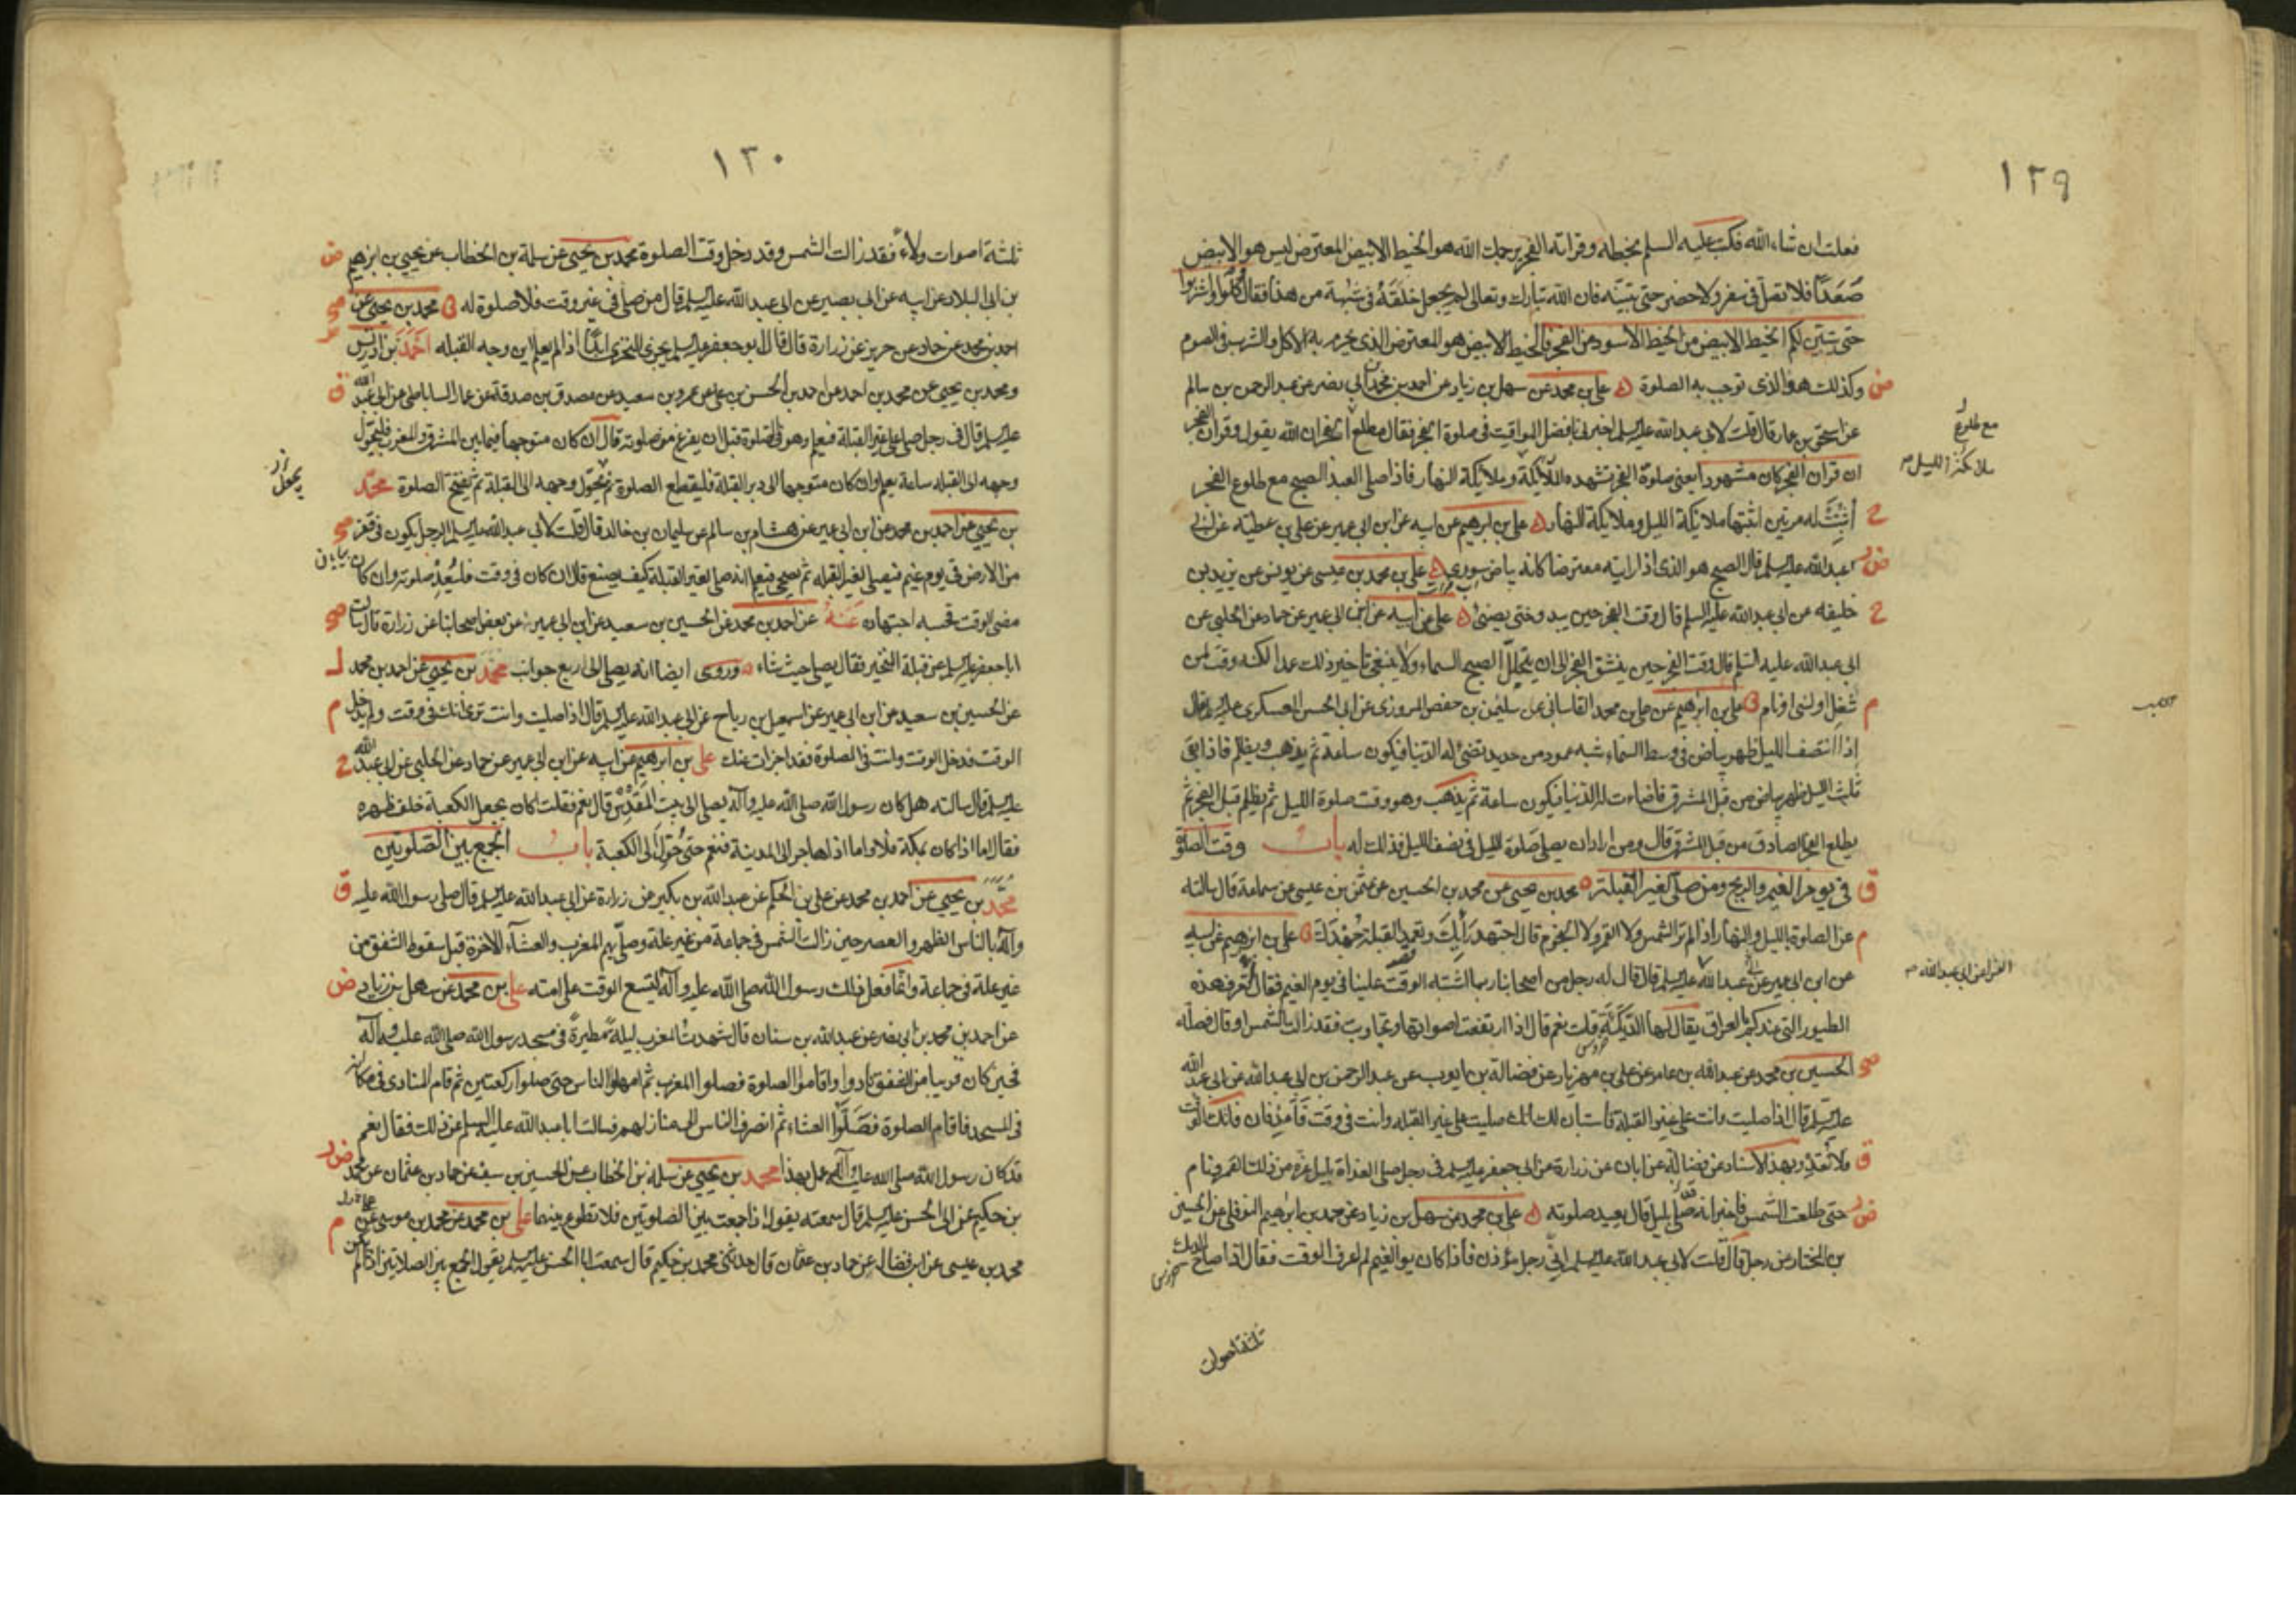 ١٢٩
فعلت ان شاء الله فكتب عليه السلم بخطه وقراته الفجر يرحمك الله هو الخيط الابيض المعترض ليس هو الابيض
صُعَدًا فلا تصل في سفر ولا حضر حتى تبينه فان الله تبارك وتعالى لم يجعل خلقه في شبهة من هذا فقال كُلُوا واشربوا
حتى يتبين لكم الخيط الابيض من الخيط الاسود من الفجر فالخيط الابيض هو المعترض الذى يحرم به الاكل والشرب في الصوم
ض وكذلك هو الذى توجب به الصلوة علي بن محمد عن سهل بن زياد عن احمد بن محمد بن ابي نصر عن عبد الرحمن بن سالم
عن اسحق بن عمار قال قلت لابي عبد الله عليه السلم اخبرني بافضل المواقيت في صلوة الفجر فقال مع طلوع الفجر ان الله يقول وقران الفجر
مع طلوع
ان قران الفجر كان مشهودا يعني صلوة الفجر تشهده ملائكة الليل وملائكة النهار فاذا صلى العبد الصبح مع طلوع الفجر
ملائكة الليل
ح أُثبت له مرتين اثبتها ملائكة الليل وملائكة النهار علي بن ابرهيم عن ابيه عن ابن ابي عمير عن علي بن عطيه عن ابي
عبد الله عليه السلم قال الصبح هو الذى اذا رايته معترضا كانه بياض سورى علي بن محمد بن عيسى عن يونس عن يزيد بن
ح خليفه عن ابي عبد الله عليه السلم قال وقت الفجر حين يبدو حتى يضئ علي عن ابيه عن ابن ابي عمير عن حماد عن الحلبي عن
ابي عبد الله عليه السلم قال وقت الفجر حين ينشق الفجر الى ان يتجلل الصبح السماء ولا ينبغي تاخير ذلك عمدا لكنه وقت لمن
م شغل او نسى او نام علي بن ابرهيم عن علي بن محمد القاساني عن سليمن بن حفص المروزى عن ابي الحسن العسكرى عليه السلم قال
اذا انتصف الليل ظهر بياض في وسط السماء شبه عمود من حديد تضئ له الدنيا فيكون ساعة ثم يذهب ويظلم فاذا بقى
ثلث الليل ظهر بياض من قبل المشرق فاضاءت له الدنيا فيكون ساعة ثم يذهب وهو وقت صلوة الليل ثم يظلم قبل الفجر ثم
يطلع الفجر الصادق من قبل المشرق قال ومن اراد ان يصلي صلوة الليل في نصف الليل فذلك له باب وقت الصلوة
ق في يوم الغيم والريح ومن صلى لغير القبلة محمد بن يحيى عن محمد بن الحسين عن عثمن بن عيسى عن سماعة قال سالته
م عن الصلوة بالليل والنهار اذا لم تر الشمس ولا القمر ولا النجوم قال اجتهد رأيك وتعمد القبلة جهدك علي بن ابرهيم عن ابيه
عن ابن ابي عمير عن عبد الله عليه السلم قال قال له رجل من اصحابنا ربما اشتبه الوقت علينا في يوم الغيم فقال تعرف هذه
الفراء عن ابي عبد الله
الطيور التي عندكم بالعراق يقال لها الديكة قلت نعم قال اذا ارتفعت اصواتها وتجاوبت فقد زالت الشمس او قال فصله
الحسين بن محمد عن عبد الله بن عامر عن علي بن مهزيار عن فضالة بن ايوب عن عبد الرحمن بن ابي عبد الله عن ابي عبد الله
عليه السلم قال اذا صليت وانت على غير القبلة فاستبان لك انك صليت على غير القبلة وانت في وقت فأعد فان فاتك الوقت
ق فلا تعد وبهذا الاسناد عن فضالة عن ابان عن زرارة عن ابي جعفر عليه السلم في رجل صلى الغداة بليل غره من ذلك القمر ونام
حتى طلعت الشمس فاخبر انه صلى بليل قال يعيد صلوته علي بن محمد عن سهل بن زياد عن محمد بن ابرهيم النوفلي عن الحسين
بن المختار عن رجل قال قلت لابي عبد الله عليه السلم اني رجل مؤذن فاذا كان يوم الغيم لم اعرف الوقت فقال اذا صاح الديك
ثلثة اصوات
١٣٠
ثلثة اصوات ولاءً فقد زالت الشمس وقد دخل وقت الصلوة محمد بن يحيى عن سلمة بن الخطاب عن يحيى بن ابرهيم ض
بن ابي البلاد عن ابيه عن ابي بصير عن ابي عبد الله عليه السلم قال من صلى في غير وقت فلا صلوة له محمد بن يحيى عن
احمد بن محمد عن حماد عن حريز عن زرارة قال قال ابو جعفر عليه السلم يجزى التحرى ابدًا اذا لم يعلم اين وجه القبله احمد بن ادريس
ومحمد بن يحيى عن محمد بن احمد عن احمد بن الحسن بن علي عن عمرو بن سعيد عن مصدق بن صدقة عن عمار الساباطي عن ابي عبد الله ق
عليه السلم قال في رجل صلى على غير القبلة فيعلم وهو في الصلوة قبل ان يفرغ من صلوته قال ان كان متوجها فيما بين المشرق والمغرب فليحول
وجهه الى القبله ساعة يعلم وان كان متوجها الى دبر القبلة فليقطع الصلوة ثم يحول وجهه الى القبلة ثم يفتتح الصلوة محمد
بن يحيى عن احمد بن محمد عن ابن ابي عمير عن هشام بن سالم عن سليمان بن خالد قال قلت لابي عبد الله عليه السلم الرجل يكون في قفر
من الارض في يوم غيم فيصلي لغير القبله ثم يصحى فيعلم انه صلى لغير القبلة كيف يصنع قال ان كان في وقت فليُعِدْ صلوته وان كان
مضى الوقت فحسبه اجتهاده عنه عن احمد بن محمد عن الحسين بن سعيد عن ابن ابي عمير عن بعض اصحابنا عن زرارة قال سالت
ابا جعفر عليه السلم عن قبلة المتحير فقال يصلي حيث شاء وروى ايضا انه يصلي الى اربع جوانب محمد بن يحيى عن احمد بن محمد
عن الحسين بن سعيد عن ابن ابي عمير عن اسمعيل بن رباح عن ابي عبد الله عليه السلم قال اذا صليت وانت ترى انك في وقت ولم يدخل م
الوقت فدخل الوقت وانت في الصلوة فقد اجزات عنك علي بن ابرهيم عن ابيه عن ابن ابي عمير عن حماد عن الحلبي عن ابي عبد الله ح
عليه السلم قال سالته هل كان رسول الله صلى الله عليه وآله يصلي الى بيت المقدس قال نعم فقلت اكان يجعل الكعبة خلف ظهره
فقال اما اذا كان بمكة فلا واما اذا هاجر الى المدينة فنعم حتى حُوّل الى الكعبة باب الجمع بين الصلوتين
محمد بن يحيى عن احمد بن محمد عن علي بن الحكم عن عبد الله بن بكير عن زرارة عن ابي عبد الله عليه السلم قال صلى رسول الله عليه ق
وآله بالناس الظهر والعصر حين زالت الشمس في جماعة من غير علة وصلى بهم المغرب والعشاء الآخرة قبل سقوط الشفق من
غير علة في جماعة وانما فعل ذلك رسول الله صلى الله عليه وآله ليتسع الوقت على امته علي بن محمد عن سهل بن زياد ض
عن احمد بن محمد بن ابي نصر عن عبد الله بن سنان قال شهدت المغرب ليلة مطيرة في مسجد رسول الله صلى الله عليه وآله
فحين كان قريبا من الشفق نادوا واقاموا الصلوة فصلوا المغرب ثم امهلوا الناس حتى صلوا ركعتين ثم قام المنادى في مكانه
في المسجد فاقام الصلوة فصلوا العشاء ثم انصرف الناس الى منازلهم فسالت ابا عبد الله عليه السلم عن ذلك فقال نعم
قد كان رسول الله صلى الله عليه وآله عمل بهذا محمد بن يحيى عن سلمه بن الخطاب عن الحسين بن سيف عن حماد بن عثمان عن محمد
بن حكيم عن ابي الحسن عليه السلم قال سمعته يقول اذا جمعت بين الصلوتين فلا تطوع بينهما علي بن محمد عن محمد بن موسى عن م
محمد بن عيسى عن ابن فضال عن حماد بن عثمان قال حدثني محمد بن حكيم قال سمعت ابا الحسن عليه السلم يقول الجمع بين الصلاتين اذا لم يكن